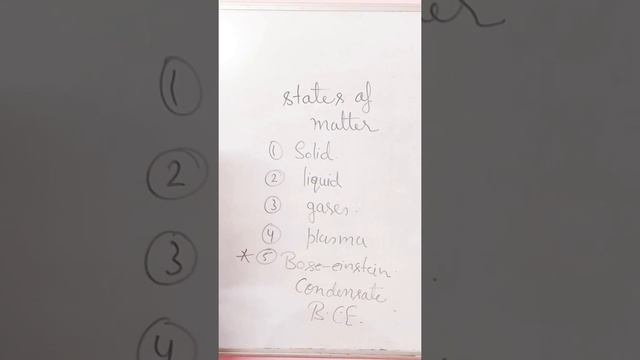 states of
matter
① Solid.
② liquid
③ gases.
④ plasma
* ⑤ Bose-einstein
Condensate
B.C.E.